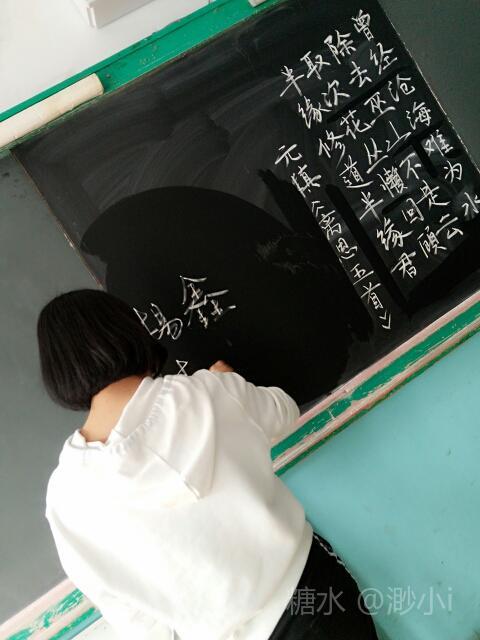 曾经沧海难为水
除去巫山不是云
取次花丛懒回顾
半缘修道半缘君
元稹《离思五首》
杨鑫
糖水 @渺小i